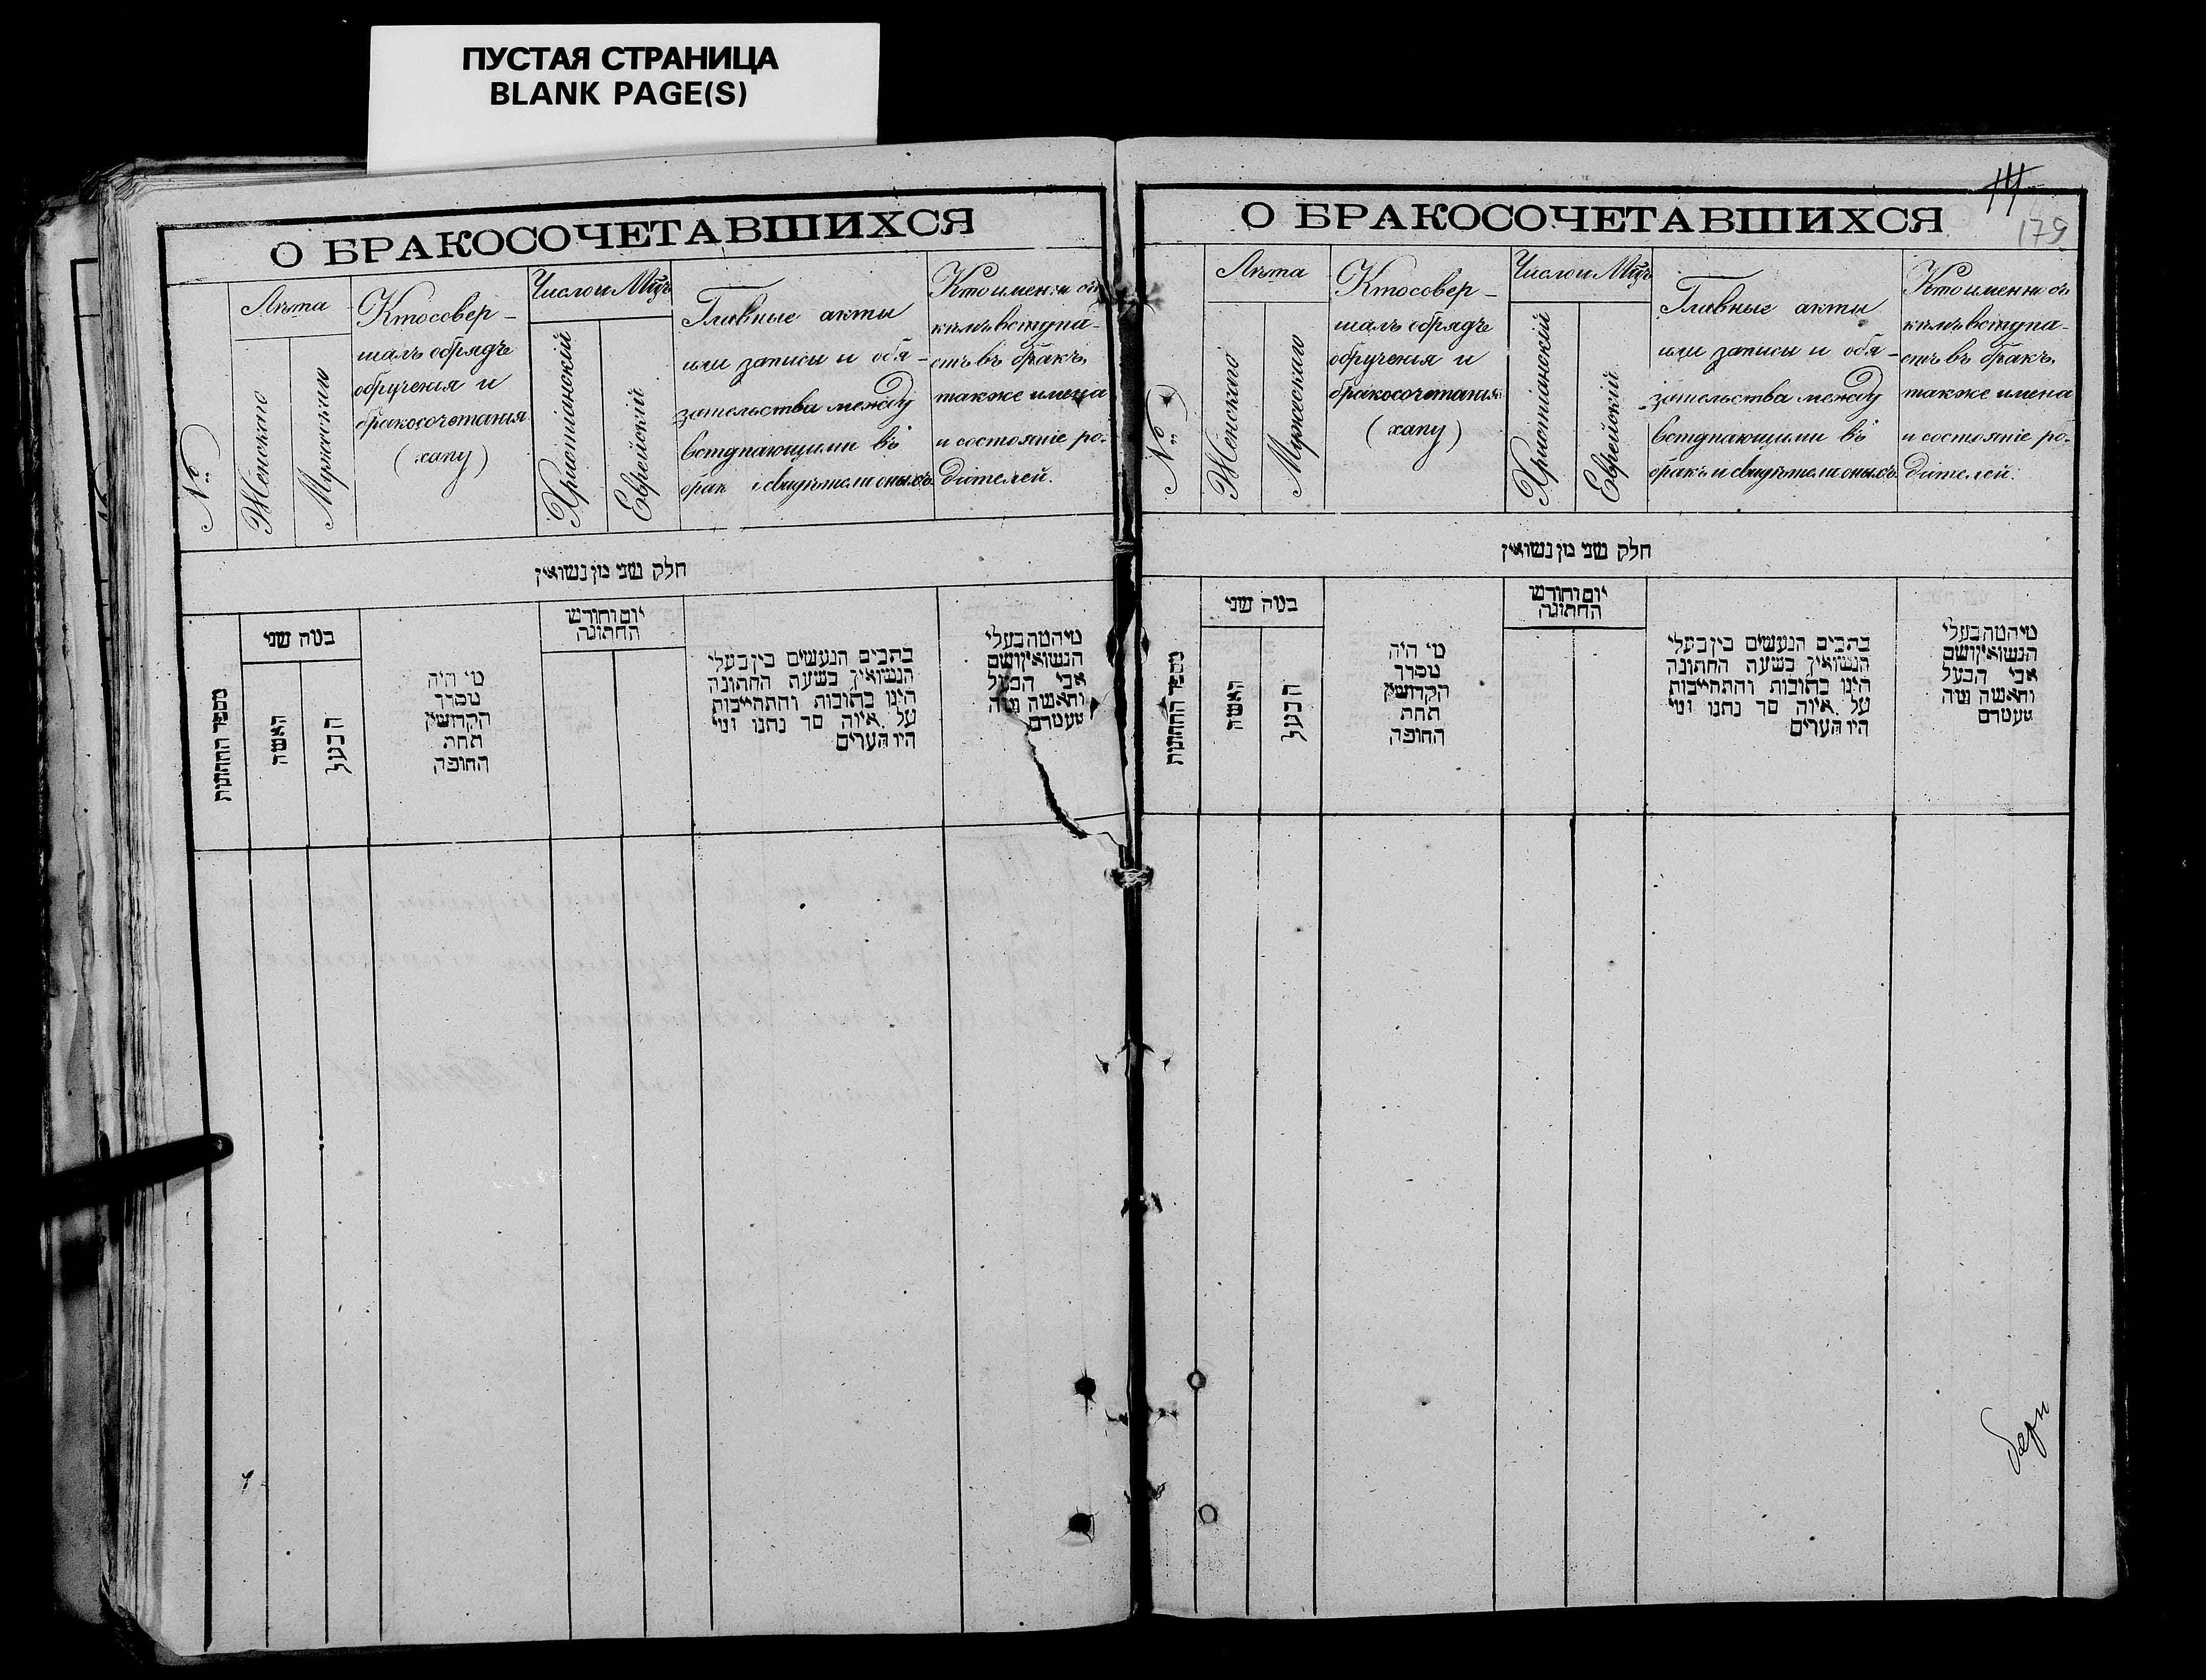 ПУСТАЯ СТРАНИЦА
BLANK PAGE(S)
О БРАКОСОЧЕТАВШИХСЯ
№
Лѣта
Женскаго
Мужескаго
Кто совер-
шалъ обрядъ
обрученія и
бракосочетанія
(хапу)
Число и Мѣц
Христіанскій
Еврейскій
Главные акты
или записи и обя-
зательства между
вступающими въ
брак и свидѣтели оныхъ.
Кто именно съ
кѣмъ вступа-
етъ въ бракъ,
также имена
и состояніе ро-
дителей.
חלק שני מן נשואין
מספר החתונות
כמה שני
האשה
הבעל
מי היה
מסדר
הקדושין
תחת
החופה
יום וחודש
החתונה
כתבים הנעשים בין בעלי
הנשואין בשעת החתונה
היינו כתובות והתחייבות
על איזה סך נתנו ומי
היו העדים
מי המה בעלי
הנשואין ושם
אבי הבעל
והאשה ומה
מעמדם
О БРАКОСОЧЕТАВШИХСЯ
179
№
Лѣта
Женскаго
Мужескаго
Кто совер-
шалъ обрядъ
обрученія и
бракосочетанія
(хапу)
Число и Мѣцъ
Христіанскій
Еврейскій
Главные акты
или записи и обя-
зательства между
вступающими въ
бракъ и свидѣтели оныхъ.
Кто именно съ
кѣмъ вступа-
етъ въ бракъ,
также имена
и состояніе ро-
дителей.
חלק שני מן נשואין
מספר החתונות
כמה שני
האשה
הבעל
מי היה
מסדר
הקדושין
תחת
החופה
יום וחודש
החתונה
כתבים הנעשים בין בעלי
הנשואין בשעת החתונה
היינו כתובות והתחייבות
על איזה סך נתנו ומי
היו העדים
מי המה בעלי
הנשואין ושם
אבי הבעל
והאשה ומה
מעמדם